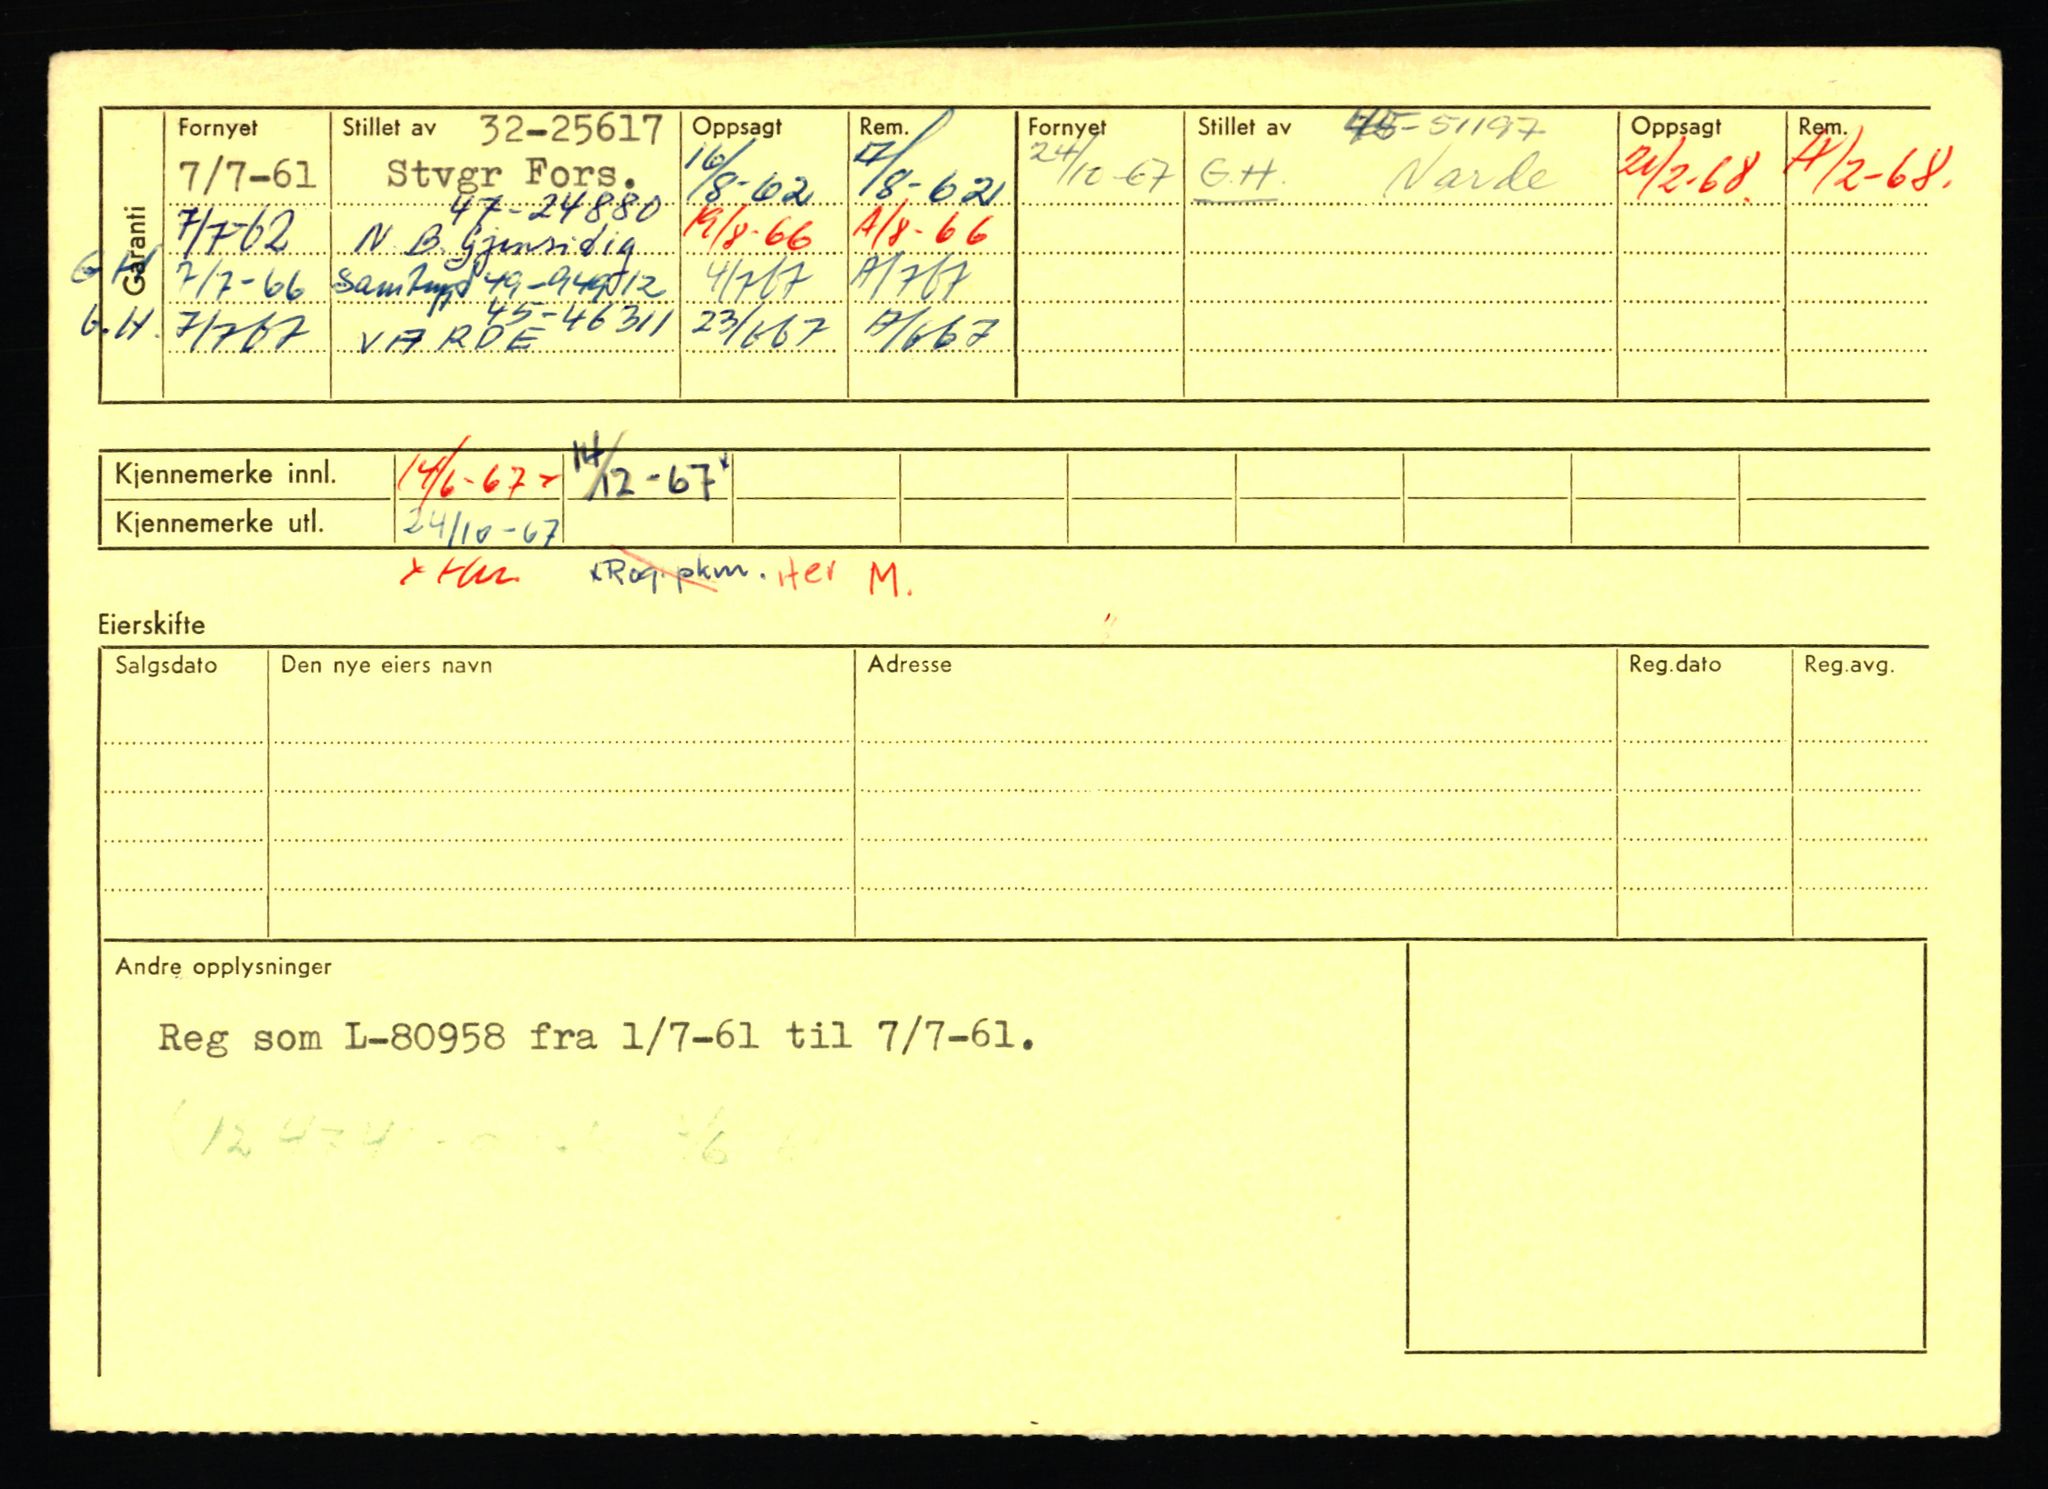 Garanti
Fornyet Stillet av 32-25617 Oppsagt Rem. Fornyet Stillet av 45-51197 Oppsagt Rem.
7/7-61 Stvgr Fors. 16/8-62 A/8-62 24/10-67 G.H. Varde 21/2-68. A/2-68.
47-24880
7/7-62 N.B. Gjensidig 19/8-66 A/8-66
G.H 7/7-66 49-94912 4/767 A/767
45-46311
G.H. 7/767 VARDE 23/667 A/667
Kjennemerke innl. 14/6-67 x 14/12-67 x
Kjennemerke utl. 24/10-67
x x Rog. pkm. Her M.
Eierskifte
Salgsdato Den nye eiers navn Adresse Reg.dato Reg.avg.
Andre opplysninger
Reg som L-80958 fra 1/7-61 til 7/7-61.